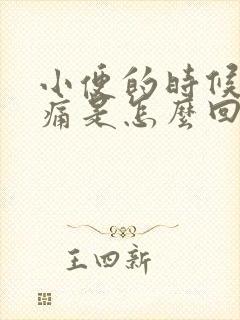 小便的時候
痛是怎麼回
王四新